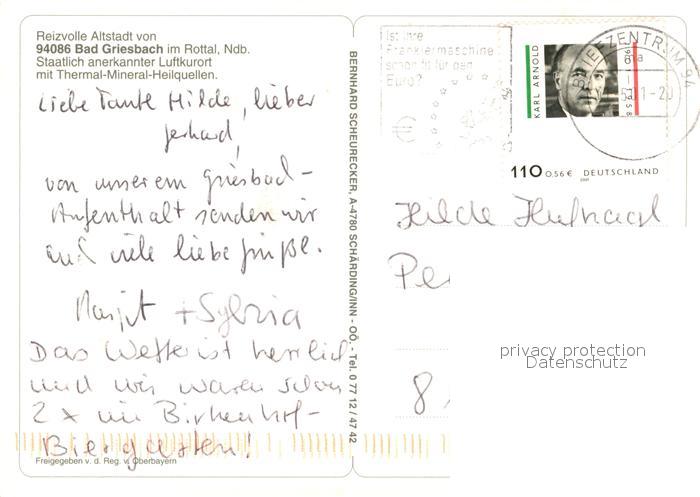 Reizvolle Altstadt von
94086 Bad Griesbach im Rottal, Ndb.
Staatlich anerkannter Luftkurort
mit Thermal-Mineral-Heilquellen.
Liebe Tante Hilde, lieber
Gerhard,
von unserem Griesbad-
Aufenthalt senden wir
auch viele liebe Grüße.
Margit + Sylvia
Das Wetter ist herrlich
und wir waren schon
2 x im Birkenhof-
Biergarten!
Freigegeben v. d. Reg. v. Oberbayern
BERNHARD SCHEURECKER, A-4780 SCHÄRDING/INN - OÖ. - Tel. 0 77 12 / 47 42
Ist Ihre
Frankiermaschine
schon fit für den
Euro?
KARL ARNOLD
BRIEFZENTRUM 94
110 0,56 € DEUTSCHLAND
Hilde Hufnagl
privacy protection
Datenschutz
8